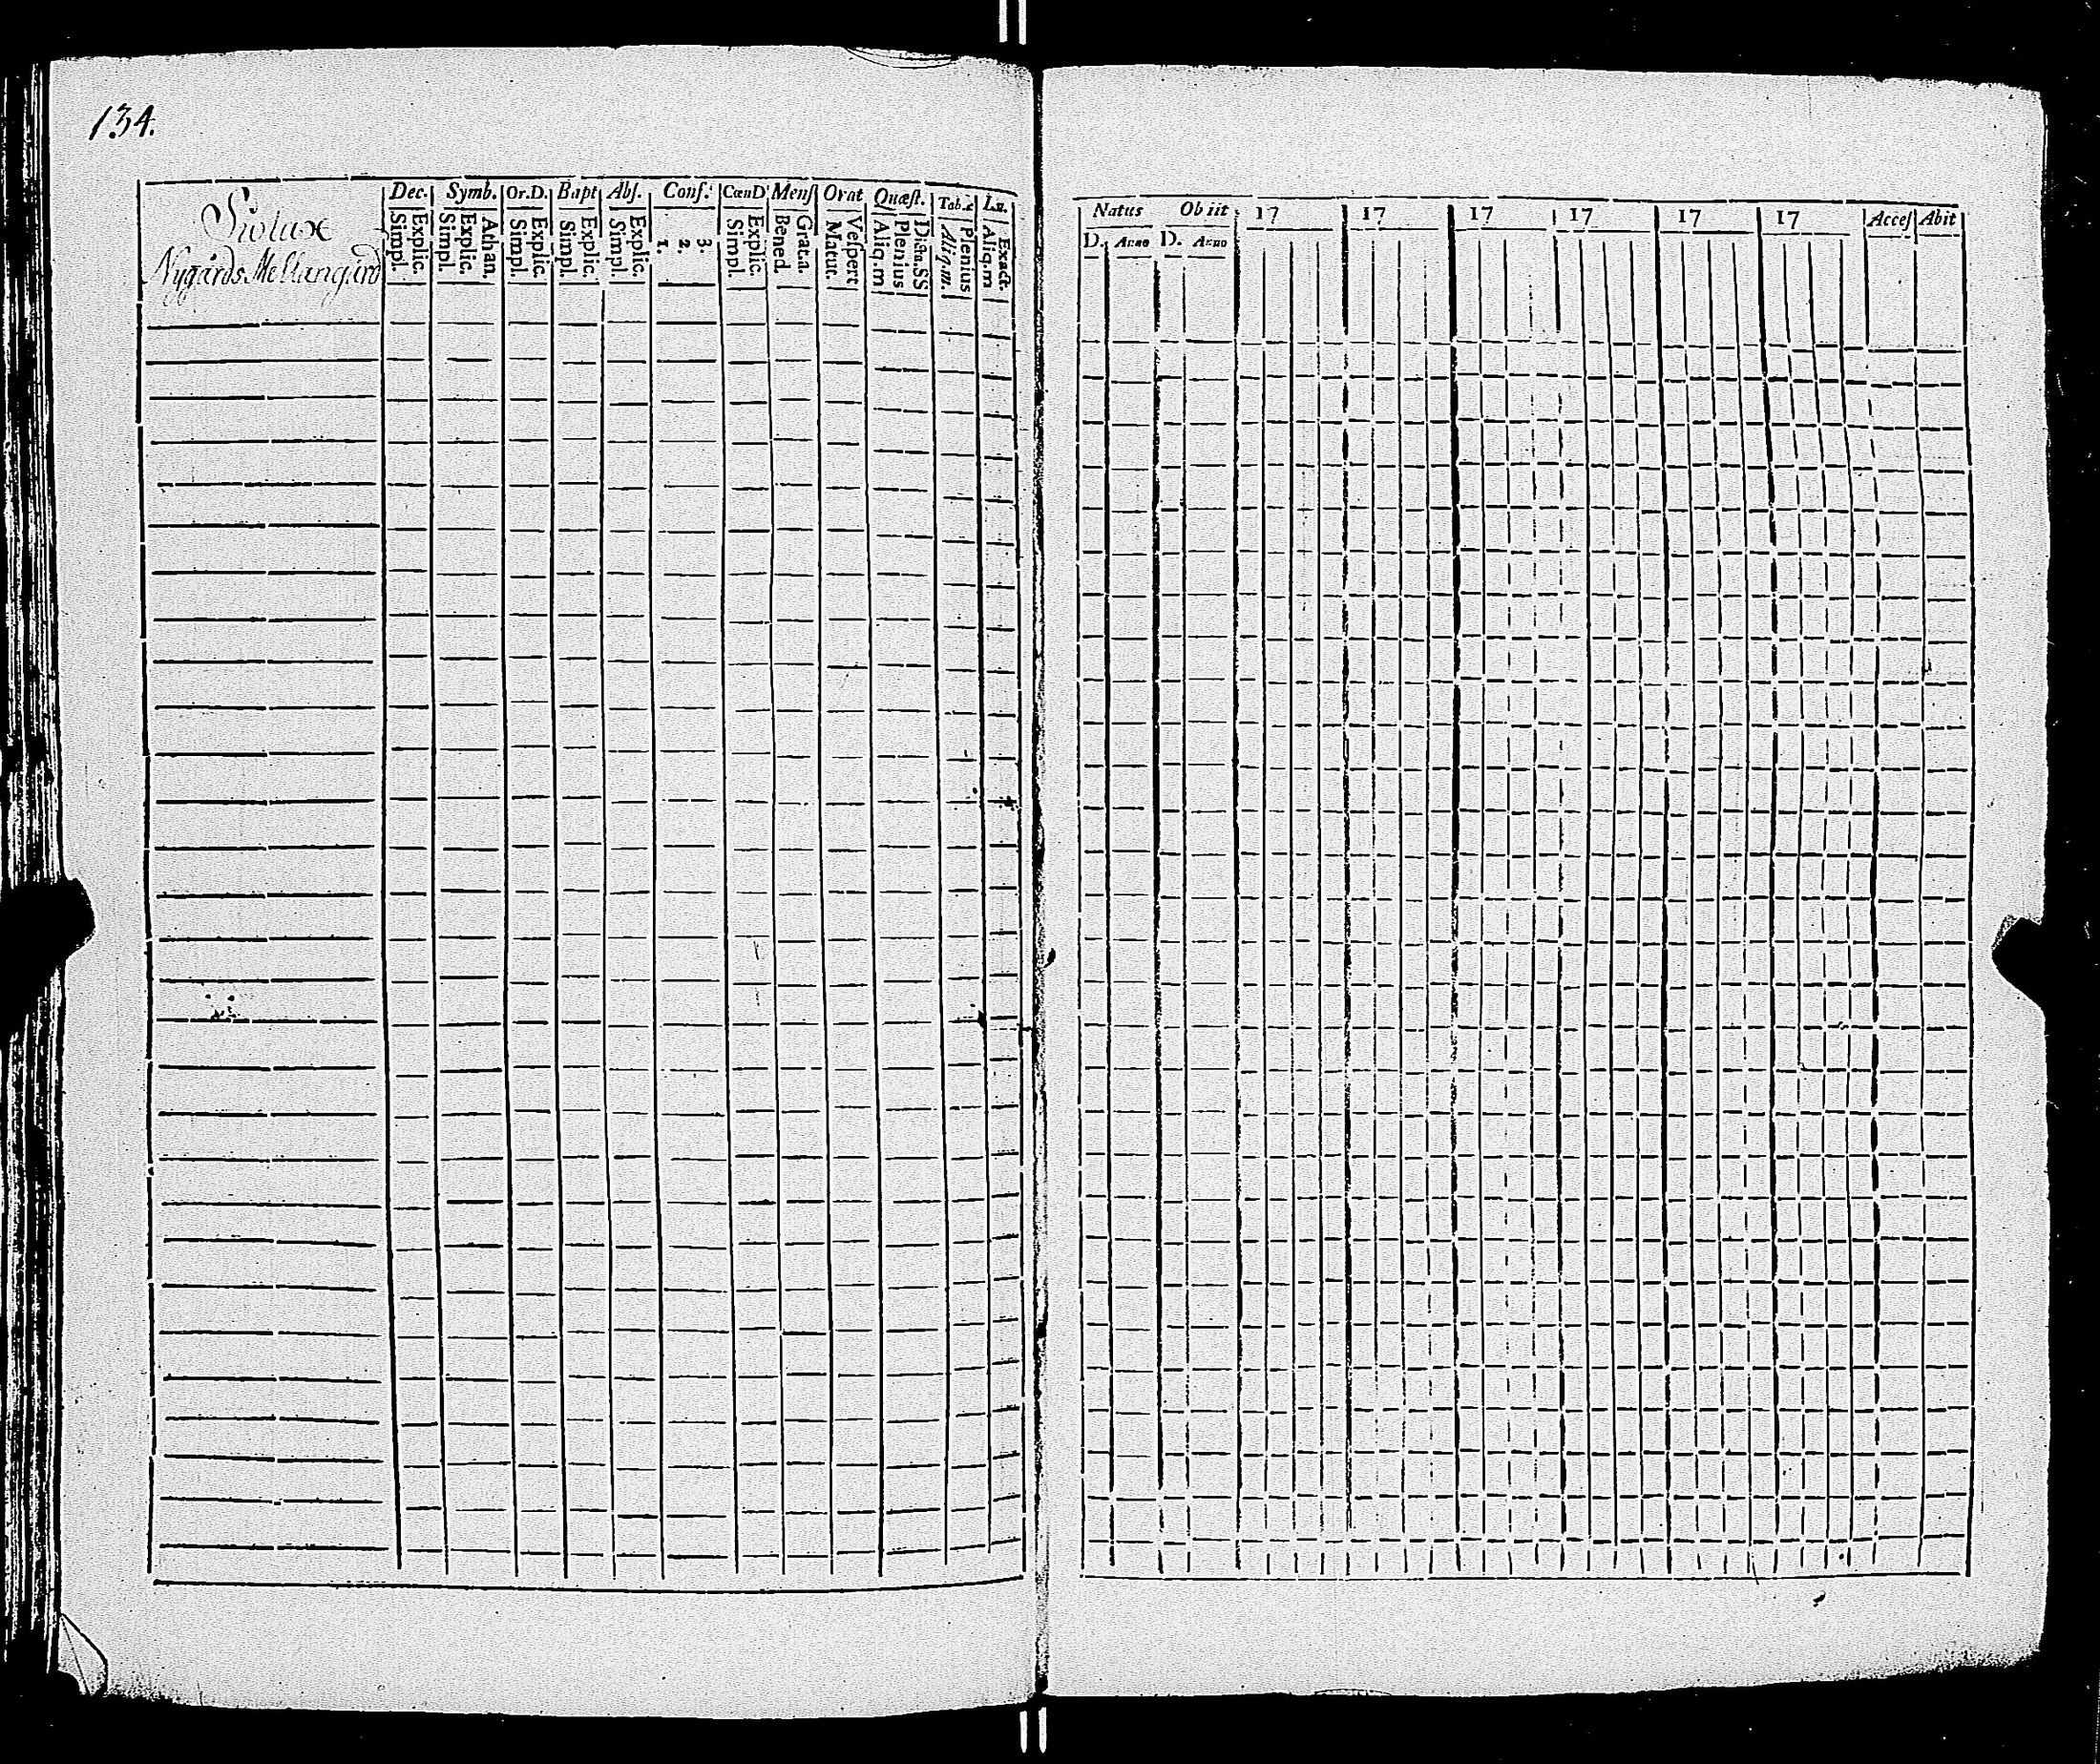 134.
Siolax
Nygårds Mellangård
Dec. Symb. Or.D. Bapt Abſ. Conf. CœnD Menſ Orat Quæſt. Tab.œ Lu.
Explic. Simpl.
Athan. Explic. Simpl.
Explic. Simpl.
Explic. Simpl.
Explic. Simpl.
3. 2. 1.
Explic. Simpl.
Grat.a. Bened.
Veſpert Matut.
Dicta.SS Plenius Aliq.m
Plenius Aliq.m.
Exact. Aliq.m
Natus Obiit 17 17 17 17 17 17 Acceſ Abit
D. Anno D. Anno